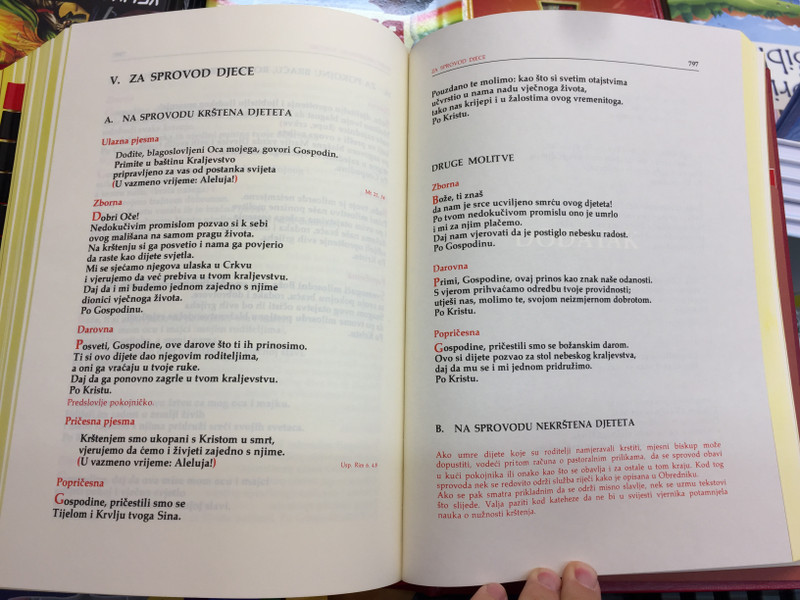 V. ZA SPROVOD DJECE
A. NA SPROVODU KRŠTENA DJETETA
Ulazna pjesma
Dođite, blagoslovljeni Oca mojega, govori Gospodin.
Primite u baštinu Kraljevstvo
pripravljeno za vas od postanka svijeta
(U vazmeno vrijeme: Aleluja!)
Mt 25, 34
Zborna
Dobri Oče!
Nedokučivim promislom pozvao si k sebi
ovog mališana na samom pragu života.
Na krštenju si ga posvetio i nama ga povjerio
da raste kao dijete svjetla.
Mi se sjećamo njegova ulaska u Crkvu
i vjerujemo da već prebiva u tvom kraljevstvu.
Daj da i mi budemo jednom zajedno s njime
dionici vječnoga života.
Po Gospodinu.
Darovna
Posveti, Gospodine, ove darove što ti ih prinosimo.
Ti si ovo dijete dao njegovim roditeljima,
a oni ga vraćaju u tvoje ruke.
Daj da ga ponovno zagrle u tvom kraljevstvu.
Po Kristu.
Predslovlje pokojničko.
Pričesna pjesma
Krštenjem smo ukopani s Kristom u smrt,
vjerujemo da ćemo i živjeti zajedno s njime.
(U vazmeno vrijeme: Aleluja!)
Usp. Rim 6, 4.8
Popričesna
Gospodine, pričestili smo se
Tijelom i Krvlju tvoga Sina.
ZA SPROVOD DJECE
797
Pouzdano te molimo: kao što si svetim otajstvima
učvrstio u nama nadu vječnoga života,
tako nas krijepi i u žalostima ovog vremenitoga.
Po Kristu.
DRUGE MOLITVE
Zborna
Bože, ti znaš
da nam je srce ucviljeno smrću ovog djeteta!
Po tvom nedokučivom promislu ono je umrlo
i mi za njim plačemo.
Daj nam vjerovati da je postiglo nebesku radost.
Po Gospodinu.
Darovna
Primi, Gospodine, ovaj prinos kao znak naše odanosti.
S vjerom prihvaćamo odredbu tvoje providnosti;
utješi nas, molimo te, svojom neizmjernom dobrotom.
Po Kristu.
Popričesna
Gospodine, pričestili smo se božanskim darom.
Ovo si dijete pozvao za stol nebeskog kraljevstva,
daj da mu se i mi jednom pridružimo.
Po Kristu.
B. NA SPROVODU NEKRŠTENA DJETETA
Ako umre dijete koje su roditelji namjeravali krstiti, mjesni biskup može
dopustiti, vodeći pri tom računa o pastoralnim prilikama, da se sprovod obavi
u kući pokojnika ili onako kao što se obavlja i za ostale u tom kraju. Kod tog
sprovoda nek se redovito održi služba riječi kako je opisana u Obredniku.
Ako se pak smatra prikladnim da se održi misno slavlje, nek se uzmu tekstovi
što slijede. Valja paziti kod kateheze da ne bi u svijesti vjernika potamnjela
nauka o nužnosti krštenja.